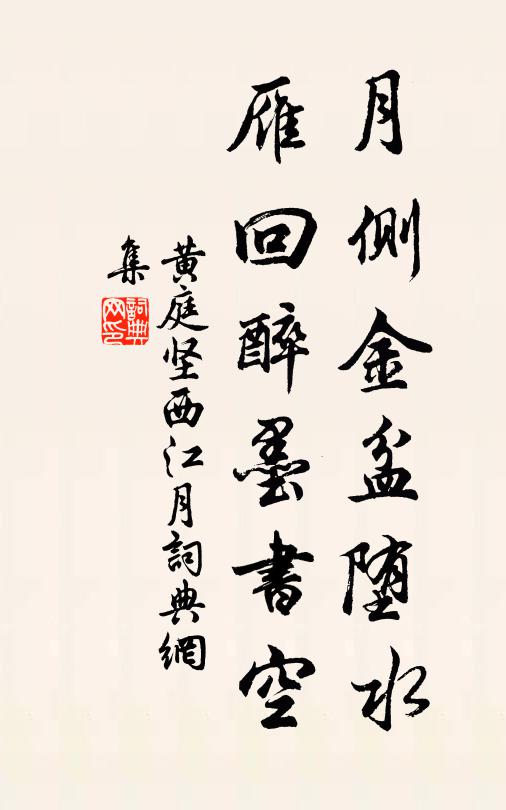 月侧金盆堕水
雁回醉墨書空
黄庭坚西江月詞典網
集
詞典網印